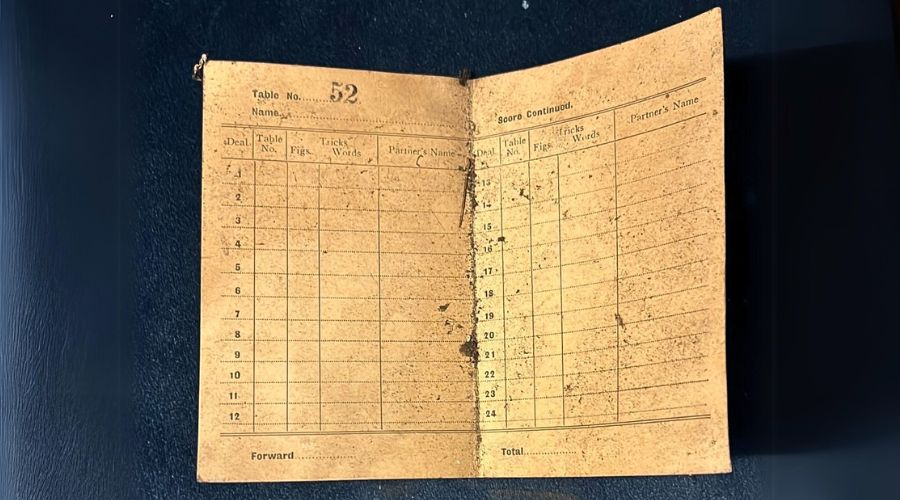 Table No. 52
Name
Deal Table No. Tricks Figs. Words Partner's Name
1
2
3
4
5
6
7
8
9
10
11
12
Forward
Score Continued.
Deal Table No. Tricks Figs. Words Partner's Name
13
14
15
16
17
18
19
20
21
22
23
24
Total